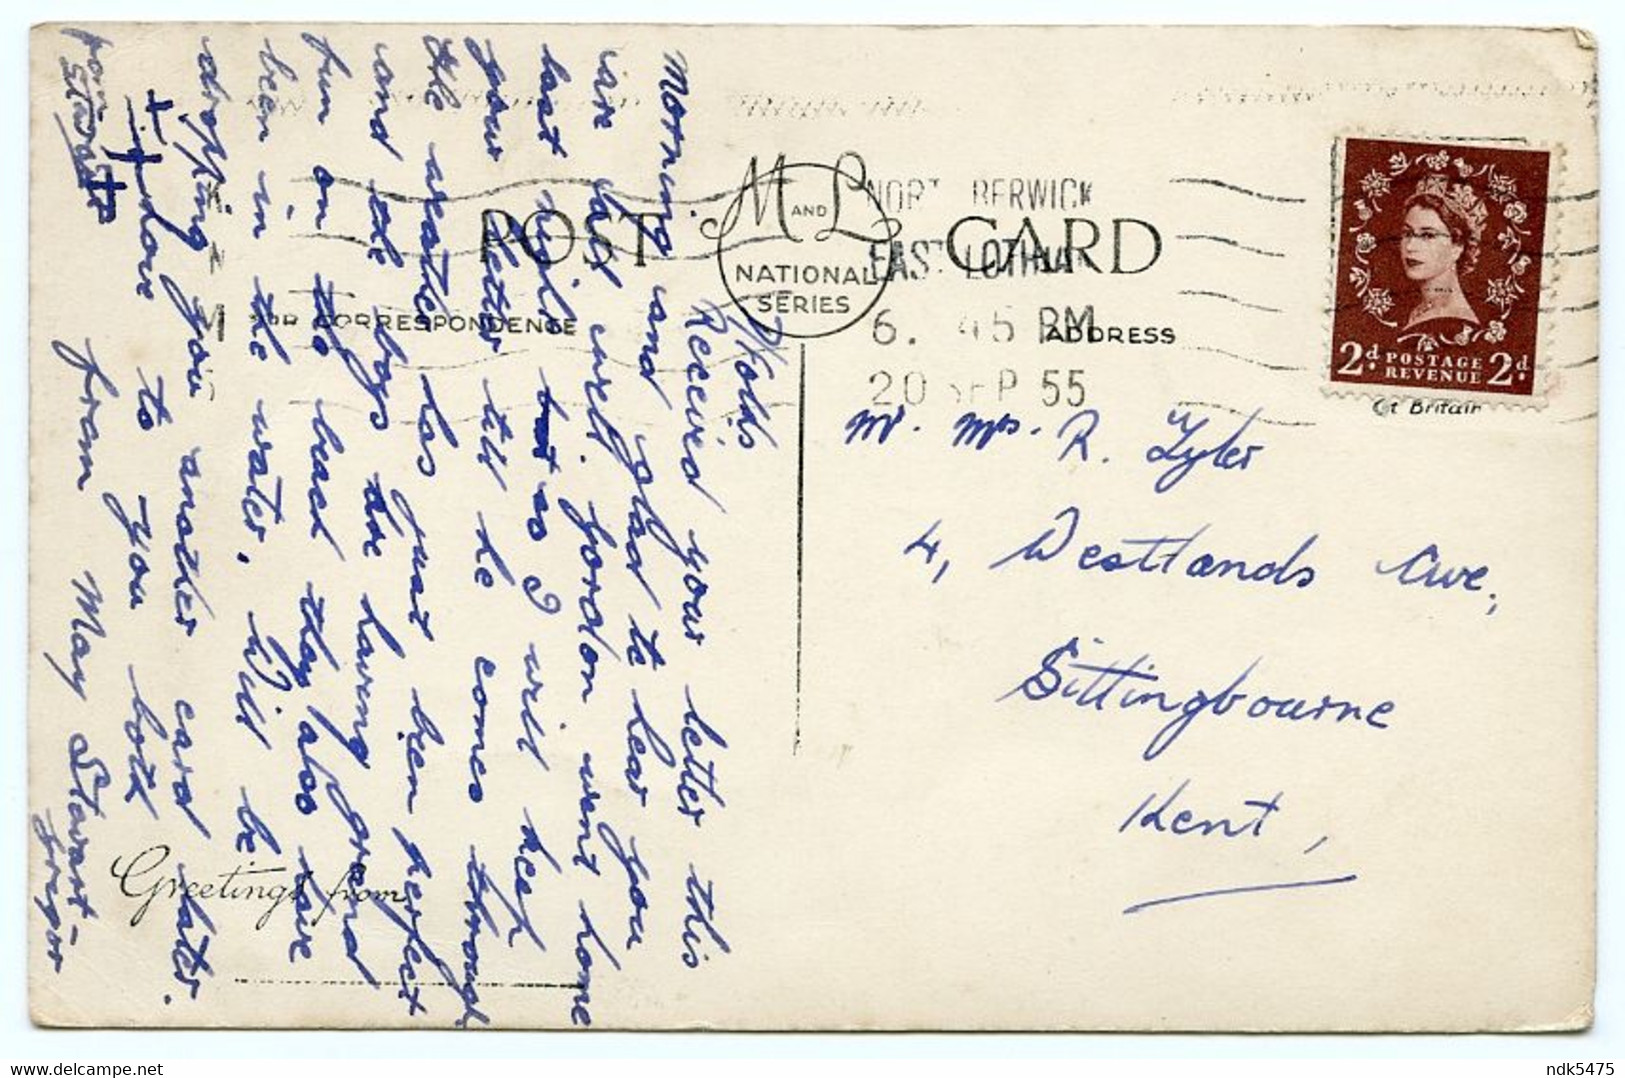 POST CARD
M AND L
NATIONAL
SERIES
FOR CORRESPONDENCE
ADDRESS
NORT BERWICK
EAST LOTHIAN
6. 45 PM
20 SEP 55
2d POSTAGE REVENUE 2d
Gt Britain
Mr. Mrs. R. Tyler
4, Westlands Ave,
Sittingbourne
Kent,
Received your letter this
Morning and glad to hear you
are both well. Gordon went home
last night so I will keep
your letter till he comes through
the weather has just been perfect
and the boys are having grand
fun on the beach they also have
been in the water. Will be
dropping you another card later.
Love to you both
from May Stewart
Greetings from
ndk5475